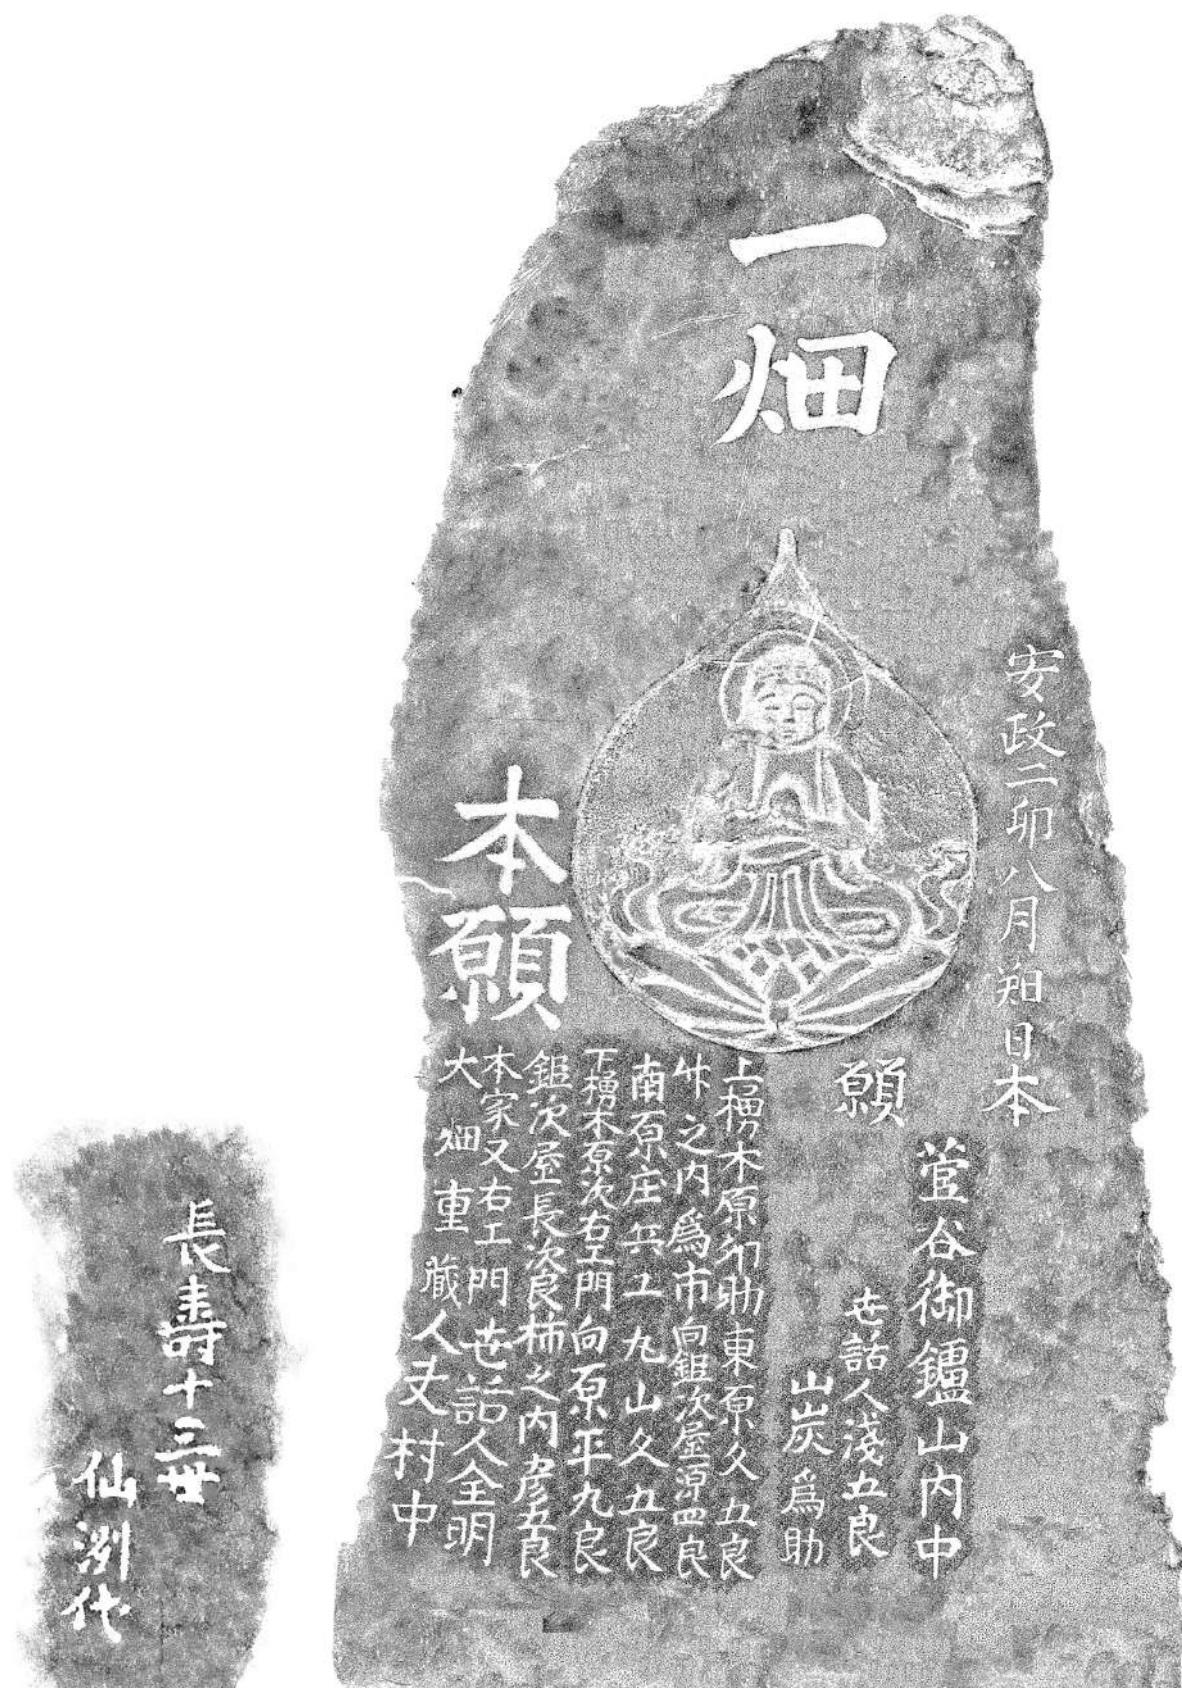 一畑
安政二卯八月朔日本
願
菅谷御鑪山内中
世話人淺五良
山炭爲助
上槝木原卯助東原久五良
竹之内爲市向鉏次屋源四良
南原庄兵工丸山久五良
下槝木原次右工門向原平九良
鉏次屋長次良柿之内彦五良
本家又右工門世話人全明
大畑重藏人夫村中
本願
長壽十三世
仙渕代